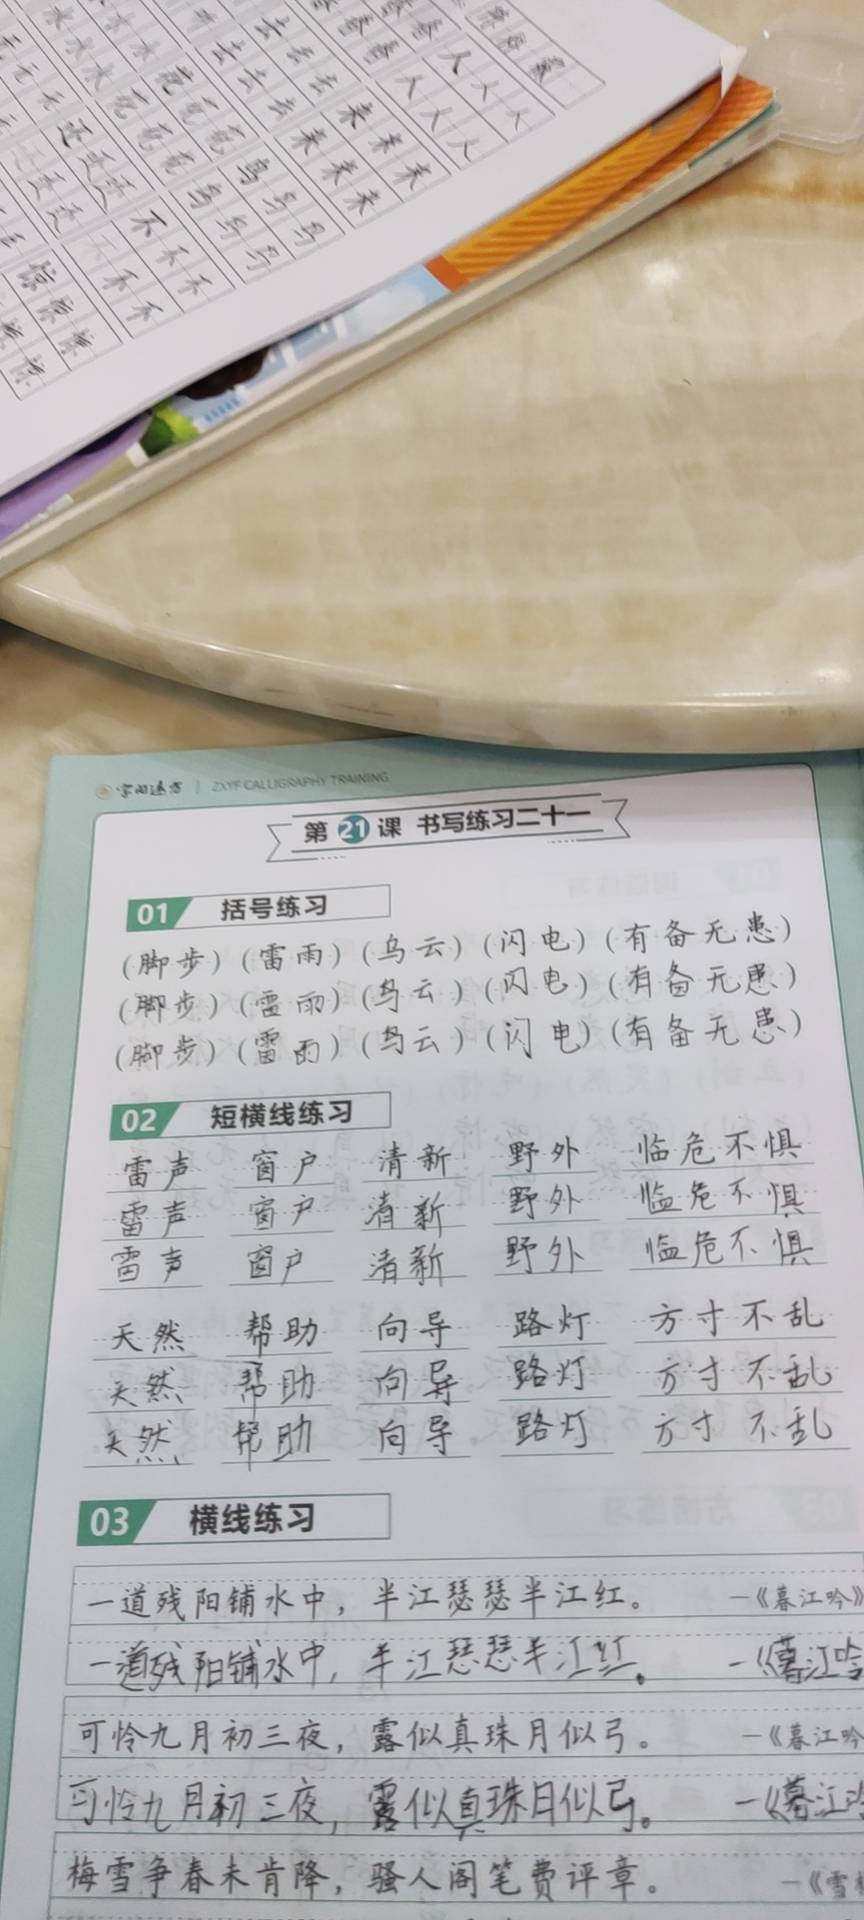 人 人 人
人 人 人
去 去 去
去 去 去
来 来 来
来 来 来
花 花 花
花 花 花
鸟 鸟 鸟
鸟 鸟 鸟
不 不 不
不 不 不
惊 惊 惊
ZXYF CALLIGRAPHY TRAINING
第 21 课 书写练习二十一
01 括号练习
(脚步) (雷雨) (乌云) (闪电) (有备无患)
(脚步) (雷雨) (乌云) (闪电) (有备无患)
(脚步) (雷雨) (乌云) (闪电) (有备无患)
02 短横线练习
雷声 窗户 清新 野外 临危不惧
雷声 窗户 清新 野外 临危不惧
雷声 窗户 清新 野外 临危不惧
天然 帮助 向导 路灯 方寸不乱
天然 帮助 向导 路灯 方寸不乱
天然 帮助 向导 路灯 方寸不乱
03 横线练习
一道残阳铺水中，半江瑟瑟半江红。 —《暮江吟》
一道残阳铺水中，半江瑟瑟半江红。 —《暮江吟
可怜九月初三夜，露似真珠月似弓。 —《暮江吟
可怜九月初三夜，露似真珠月似弓。 —《暮江吟
梅雪争春未肯降，骚人阁笔费评章。 —《雪梅